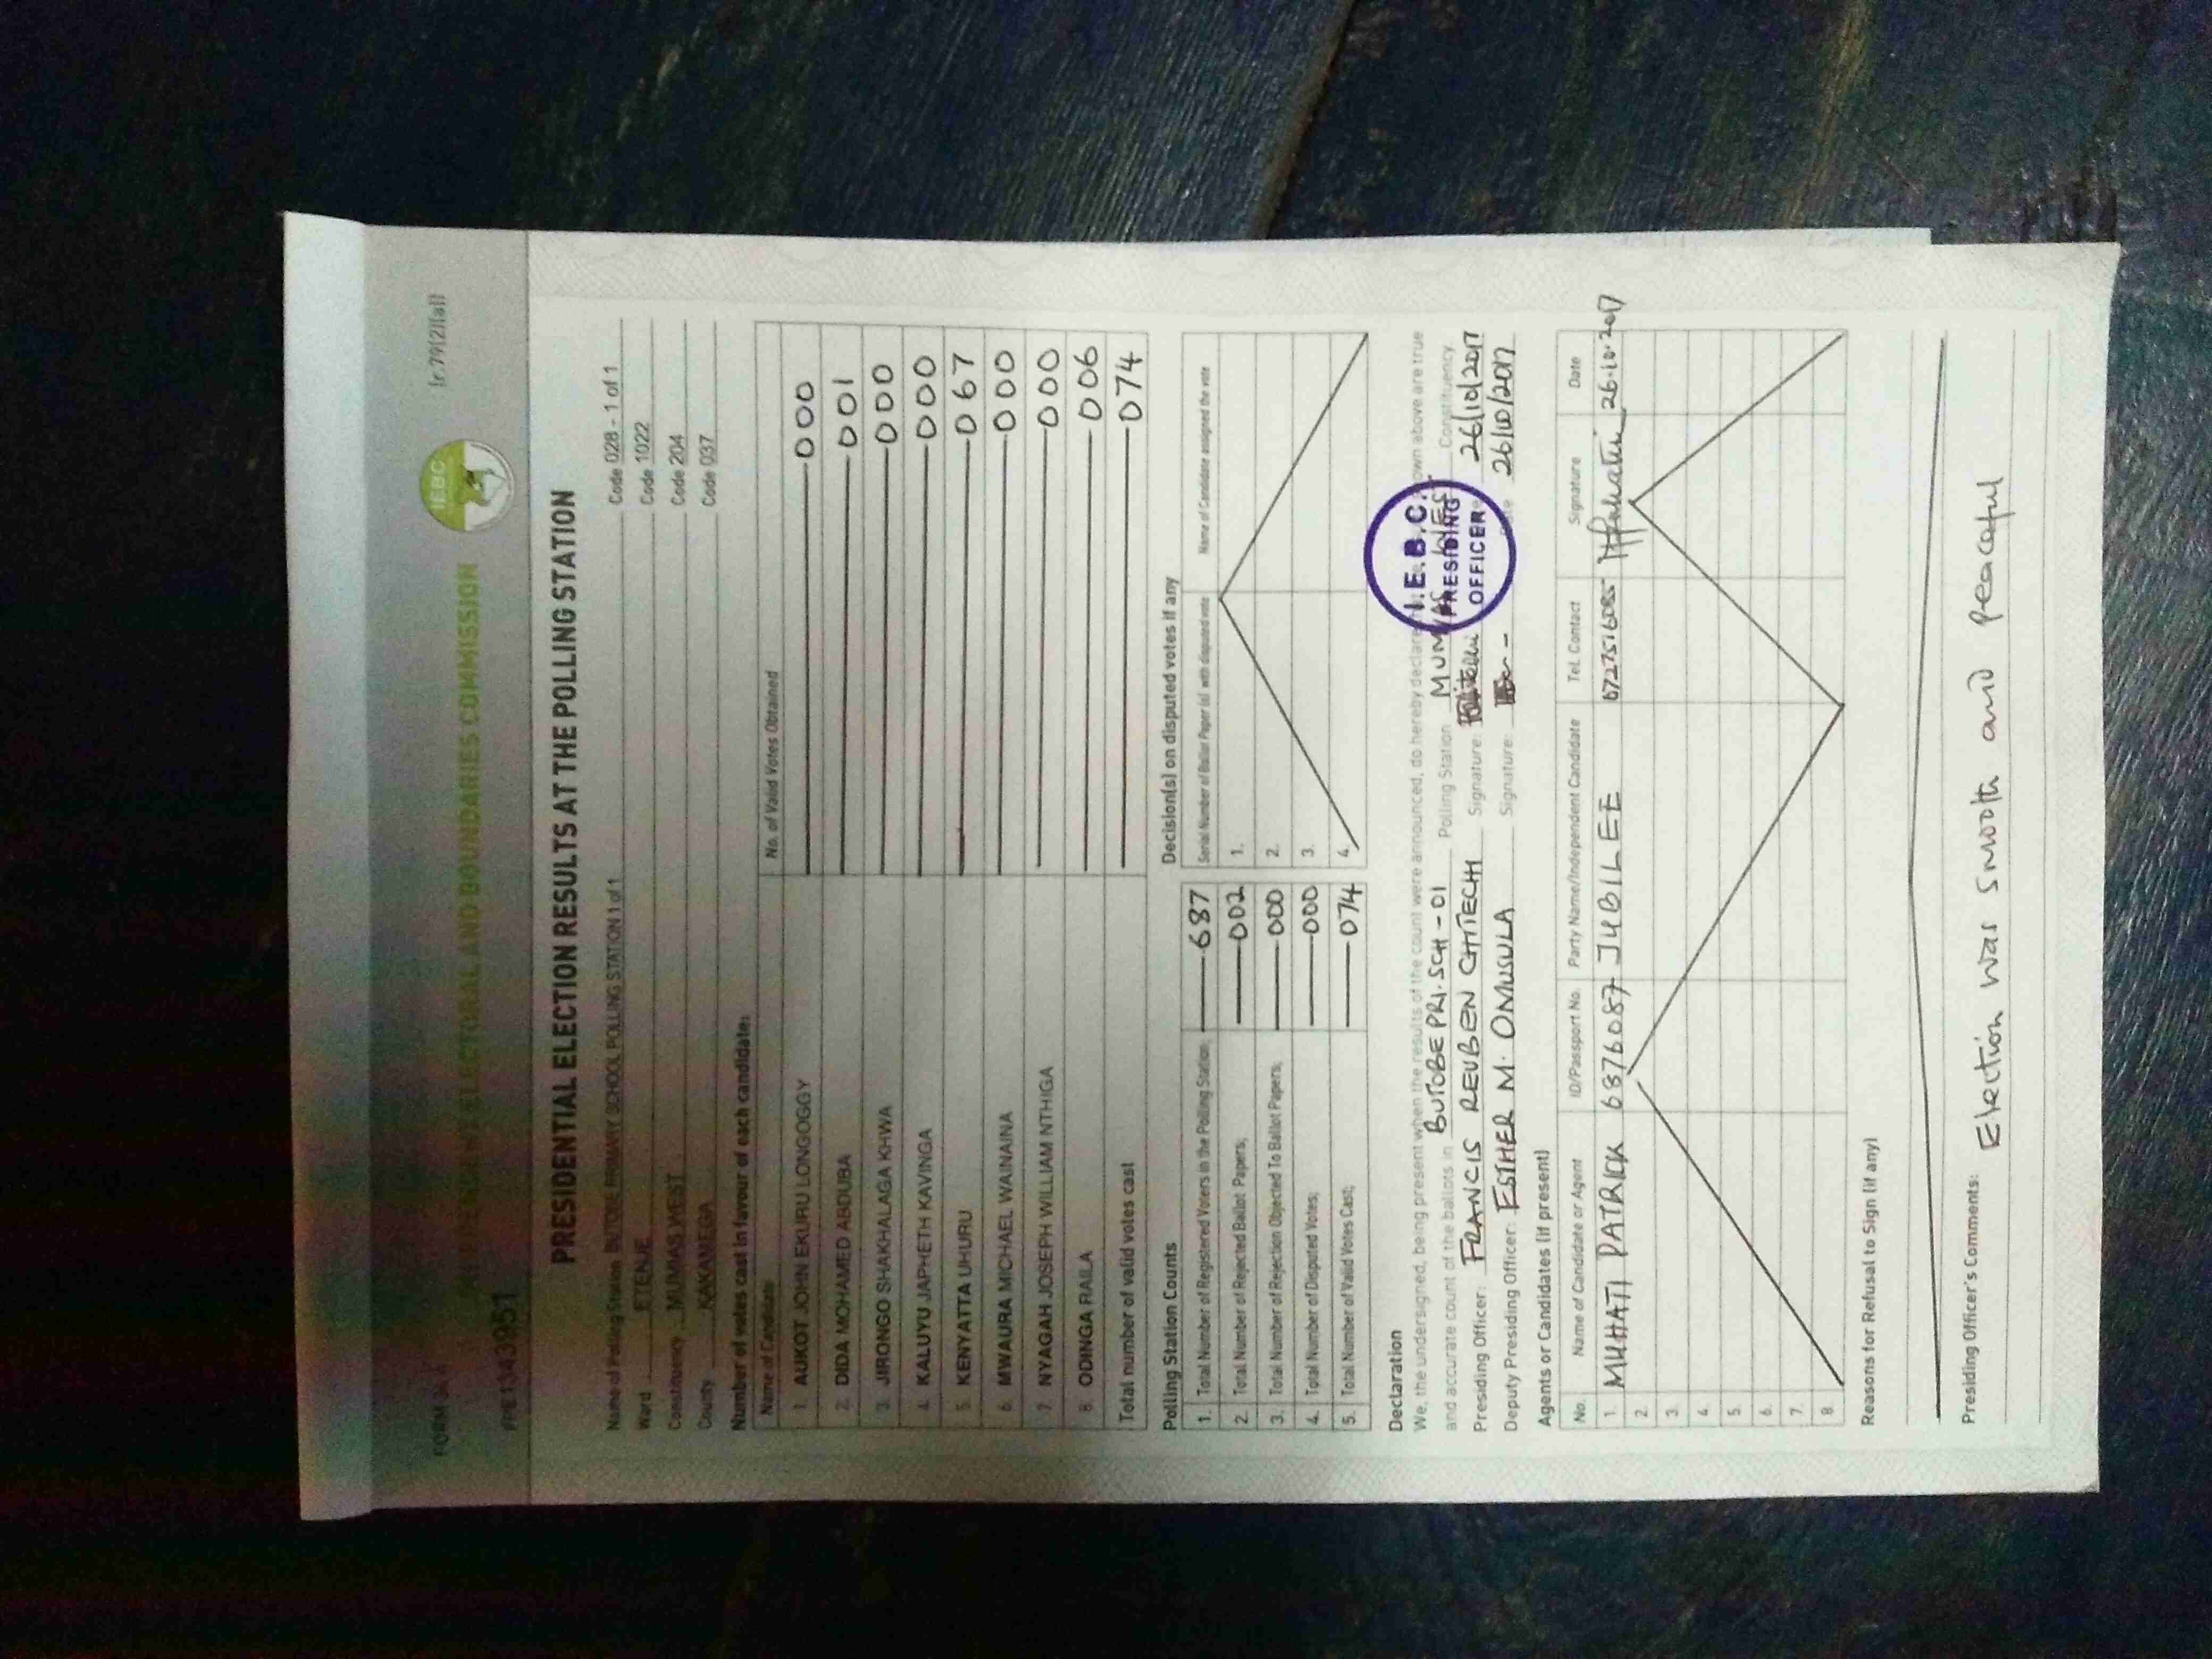 FORM 34A [r.79(2)(a)]
INDEPENDENT ELECTORAL AND BOUNDARIES COMMISSION
IEBC
PRE1343951
PRESIDENTIAL ELECTION RESULTS AT THE POLLING STATION
Name of Polling Station BUTOBE PRIMARY SCHOOL POLLING STATION 1 of 1 Code 028 - 1 of 1
Ward ETENJE Code 1022
Constituency MUMIAS WEST Code 204
County KAKAMEGA Code 037
Number of votes cast in favour of each candidate:
Name of Candidate No. of Valid Votes Obtained
1. AUKOT JOHN EKURU LONGOGGY 000
2. DIDA MOHAMED ABDUBA 001
3. JIRONGO SHAKHALAGA KHWA 000
4. KALUYU JAPHETH KAVINGA 000
5. KENYATTA UHURU 067
6. MWAURA MICHAEL WAINAINA 000
7. NYAGAH JOSEPH WILLIAM NTHIGA 000
8. ODINGA RAILA 006
Total number of valid votes cast 074
Polling Station Counts Decision(s) on disputed votes if any
1. Total Number of Registered Voters in the Polling Station; 687 Serial Number of Ballot Paper (s) with disputed vote Name of Candidate assigned the vote
2. Total Number of Rejected Ballot Papers; 002 1.
3. Total Number of Rejection Objected To Ballot Papers; 000 2.
4. Total Number of Disputed Votes; 000 3.
5. Total Number of Valid Votes Cast; 074 4.
Declaration
We, the undersigned, being present when the results of the count were announced, do hereby declare above are true
and accurate count of the ballots in BUTOBE PRI. SCH - 01 Polling Station MUMIAS WEST Constituency
Presiding Officer: FRANCIS REUBEN CHITECHI Signature: 26/10/2017
Deputy Presiding Officer: ESTHER M. OMUSULA Signature: 26/10/2017
I.E.B.C.
PRESIDING
OFFICER
Agents or Candidates (if present)
No. Name of Candidate or Agent ID/Passport No. Party Name/Independent Candidate Tel. Contact Signature Date
1. MUHATI PATRICK 6876087 JUBILEE 0727516085 26.10.2017
2.
3.
4.
5.
6.
7.
8.
Reasons for Refusal to Sign (if any)
Presiding Officer's Comments: Election was smooth and peaceful